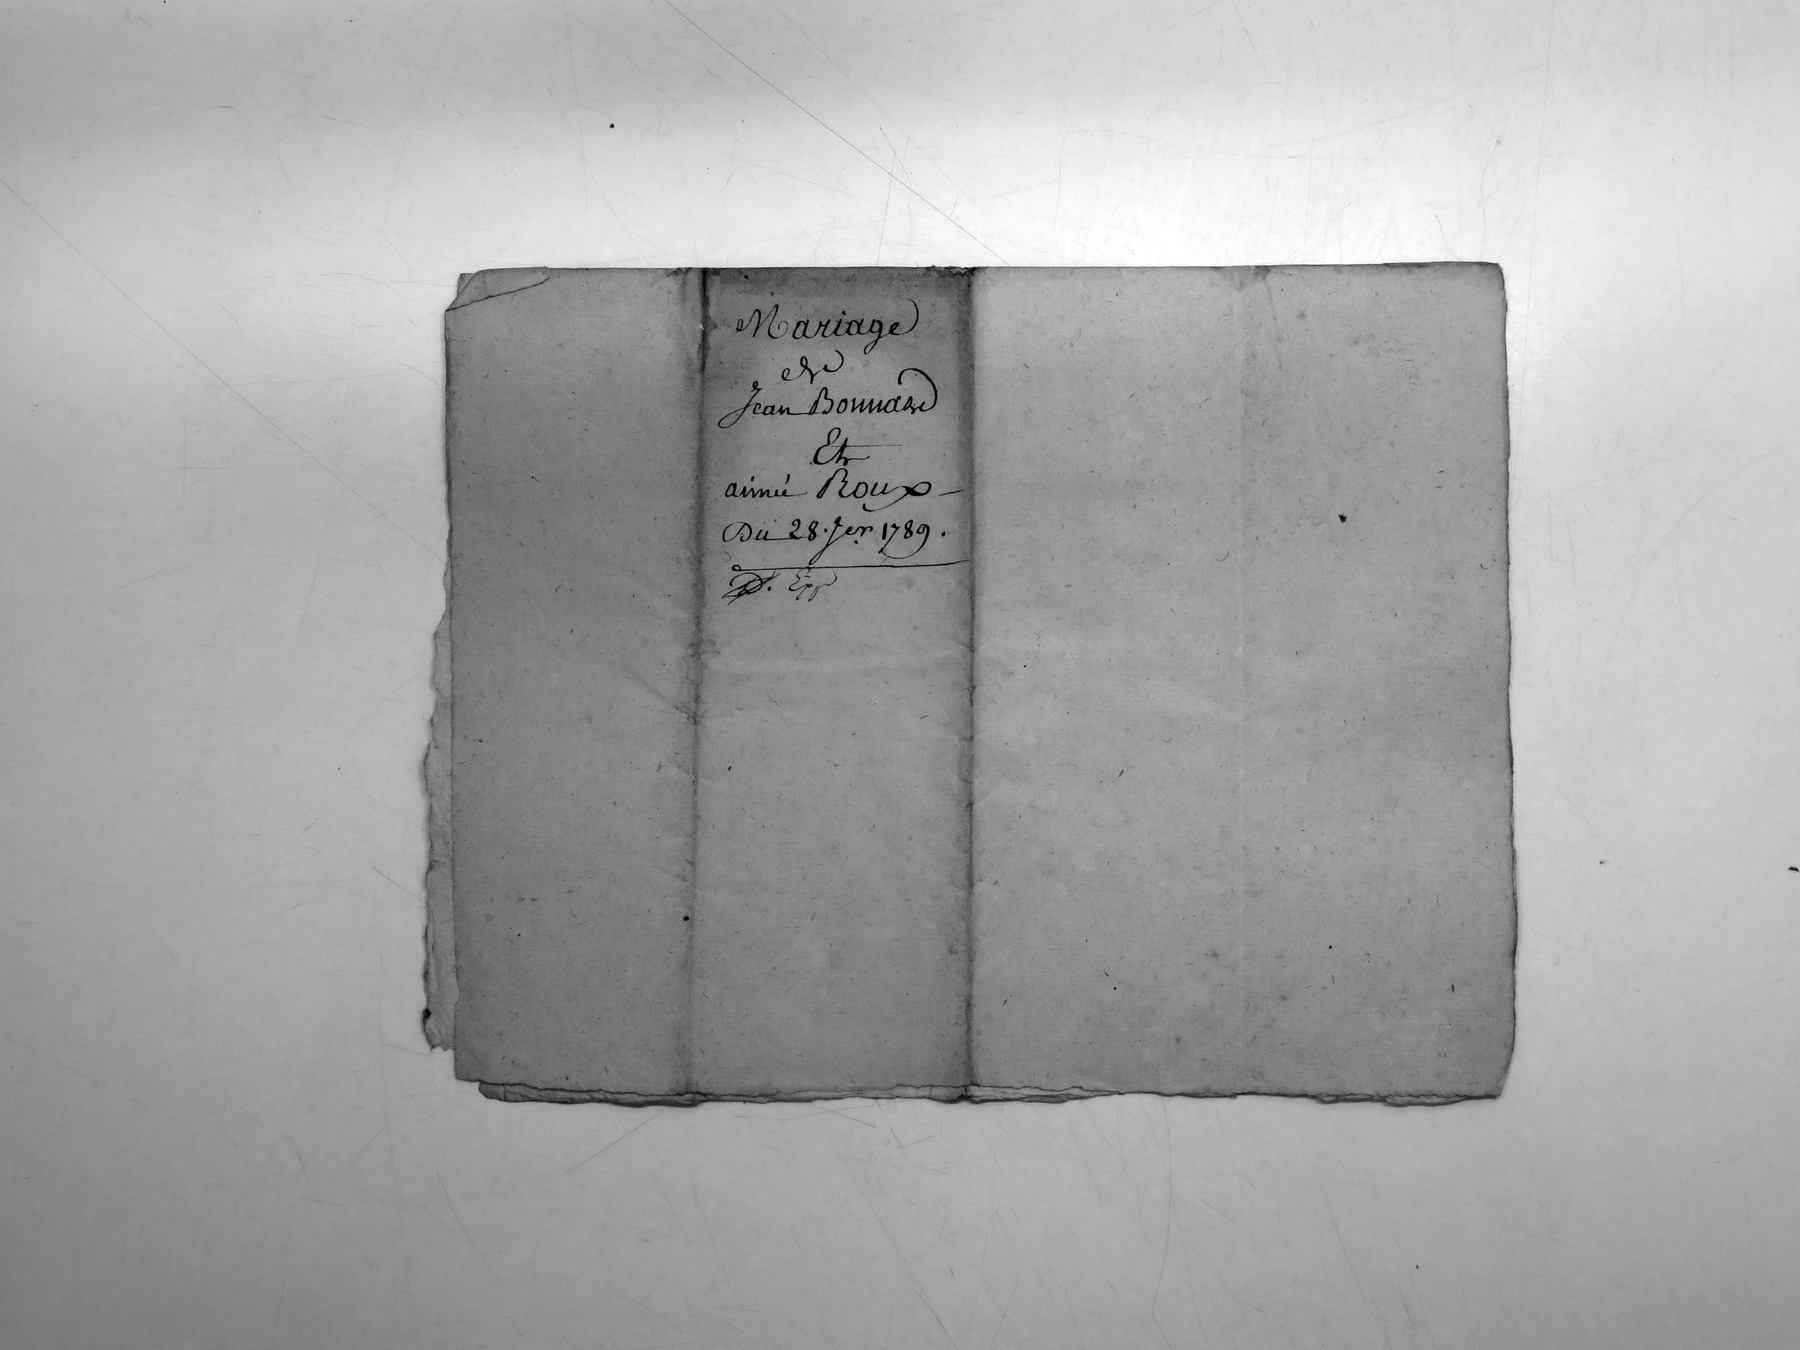 Mariage
de
Jean Bonnard
Et
aimée Roux
Du 28. Jer. 1789.